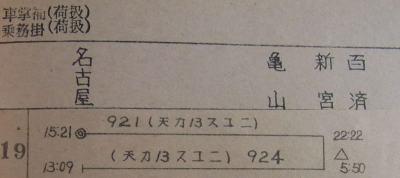 車掌補(荷扱)
乗務掛(荷扱)
名古屋 亀山 新宮 百済
15:21 ◎ 921(天カ13スユニ) 22:22
19 △
13:09 (天カ13スユニ) 924 5:50